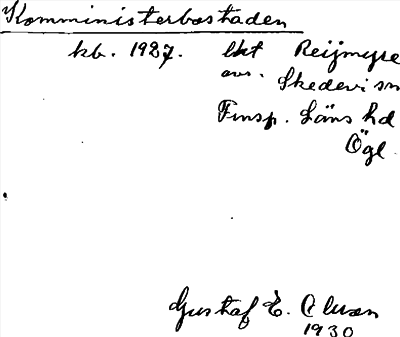 Komministerbostaden
kb. 1927. ekt Reijmyre
avs. Skedevi sn
Finsp. Läns hd
Ögl.
Gustaf E.
1930